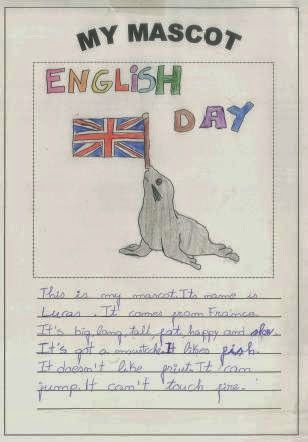 MY MASCOT
ENGLISH
DAY
This is my mascot. Its name is
Lucas. It comes from France.
It's big, long, tall, fat, happy and
It's got a moustache. It likes fish.
It doesn't like fruits. It can
jump. It can't touch fire.